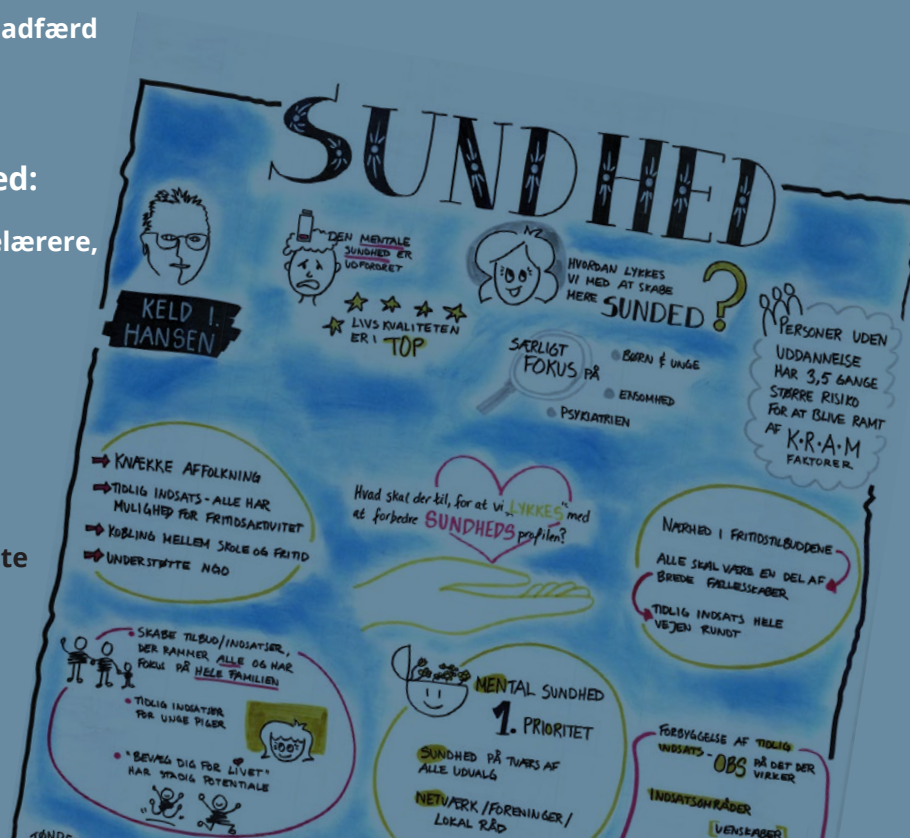 adfærd
ed:
elærere,
te
SUNDHED
KELD I.
HANSEN
DEN MENTALE
SUNDHED ER
UDFORDRET
LIVSKVALITETEN
ER I TOP
HVORDAN LYKKES
VI MED AT SKABE
MERE SUNDED?
SÆRLIGT
FOKUS PÅ
BØRN & UNGE
ENSOMHED
PSYKIATRIEN
PERSONER UDEN
UDDANNELSE
HAR 3,5 GANGE
STØRRE RISIKO
FOR AT BLIVE RAMT
AF K·R·A·M
FAKTORER
KNÆKKE AFFOLKNING
TIDLIG INDSATS - ALLE HAR
MULIGHED FOR FRITIDSAKTIVITET
KOBLING MELLEM SKOLE OG FRITID
UNDERSTØTTE NGO
Hvad skal der til, for at vi "LYKKES" med
at forbedre SUNDHEDS profilen?
NÆRHED I FRITIDSTILBUDDENE
ALLE SKAL VÆRE EN DEL AF
BREDE FÆLLESSKABER
TIDLIG INDSATS HELE
VEJEN RUNDT
SKABE TILBUD/INDSATSER,
DER RAMMER ALLE OG HAR
FOKUS PÅ HELE FAMILIEN
TIDLIG INDSATSER
FOR UNGE PIGER
"BEVÆG DIG FOR LIVET"
HAR STADIG POTENTIALE
MENTAL SUNDHED
1. PRIORITET
SUNDHED PÅ TVÆRS AF
ALLE UDVALG
NETVÆRK/FORENINGER/
LOKAL RÅD
FORBYGGELSE AF TIDLIG
INDSATS - OBS PÅ DET DER
VIRKER
INDSATSOMRÅDER
VENSKABER